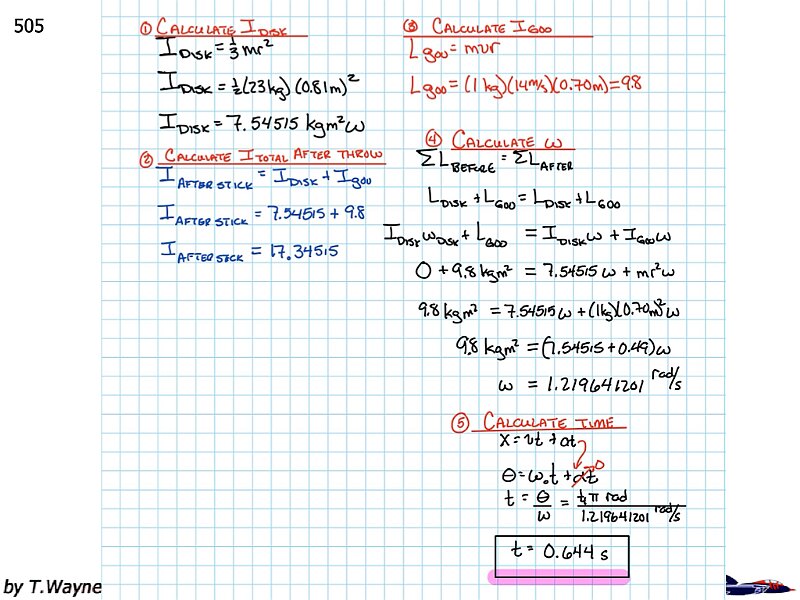 505
① CALCULATE I_DISK
I_DISK = 1/3 mr²
I_DISK = 1/2(23kg)(0.81m)²
I_DISK = 7.54515 kgm²ω
② CALCULATE I_TOTAL AFTER THROW
I_AFTER STICK = I_DISK + I_goo
I_AFTER STICK = 7.54515 + 9.8
I_AFTER STICK = 17.34515
③ CALCULATE I_GOO
L_goo = mvr
L_goo = (1kg)(14m/s)(0.70m)=9.8
④ CALCULATE ω
ΣL_BEFORE = ΣL_AFTER
L_DISK + L_GOO = L_DISK + L_GOO
I_DISK ω_DISK + L_GOO = I_DISK ω + I_GOO ω
0 + 9.8 kgm² = 7.54515 ω + mr²ω
9.8 kgm² = 7.54515ω + (1kg)(0.70m)²ω
9.8 kgm² = (7.54515 + 0.49)ω
ω = 1.219641201 rad/s
⑤ CALCULATE TIME
x = vt + at
θ = ω₀t + αt 0
t = θ/ω = ¼π rad / 1.219641201 rad/s
t = 0.644 s
by T.Wayne